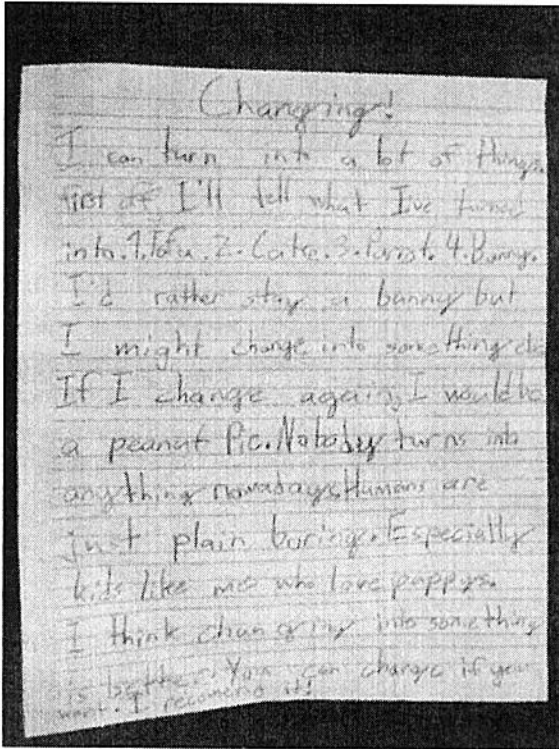 Changing!
I can turn into a lot of things.
first off I'll tell what I've turned
into. 1. Tofu. 2. Cake. 3. Parrot. 4. Bunny.
I'd rather stay a bunny but
I might change into something els
If I change again, I would be
a peanut Pie. Nobody turns into
anything nowadays, Humans are
just plain boring. Especially
kids like me who love puppys.
I think changing into something
is better. You can change if you
want. I recomend it!